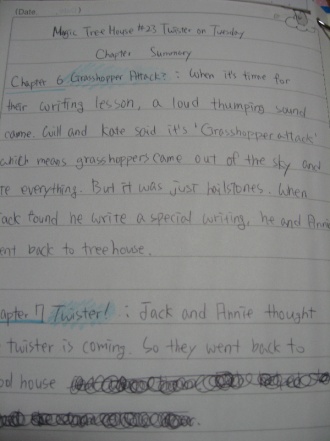 (Date
Magic Tree House #23 Twister on Tuesday
Chapter Summary
Chapter 6 Grasshopper Attack? : When it's time for
their writing lesson, a loud thumping sound
came. Will and Kate said it's 'Grasshopper attack'
which means grasshoppers came out of the sky and
te everything. But it was just hailstones. When
Jack found he write a special writing, he and Annie
ent back to treehouse.
apter 7 Twister! : Jack and Annie thought
twister is coming. So they went back to
od house